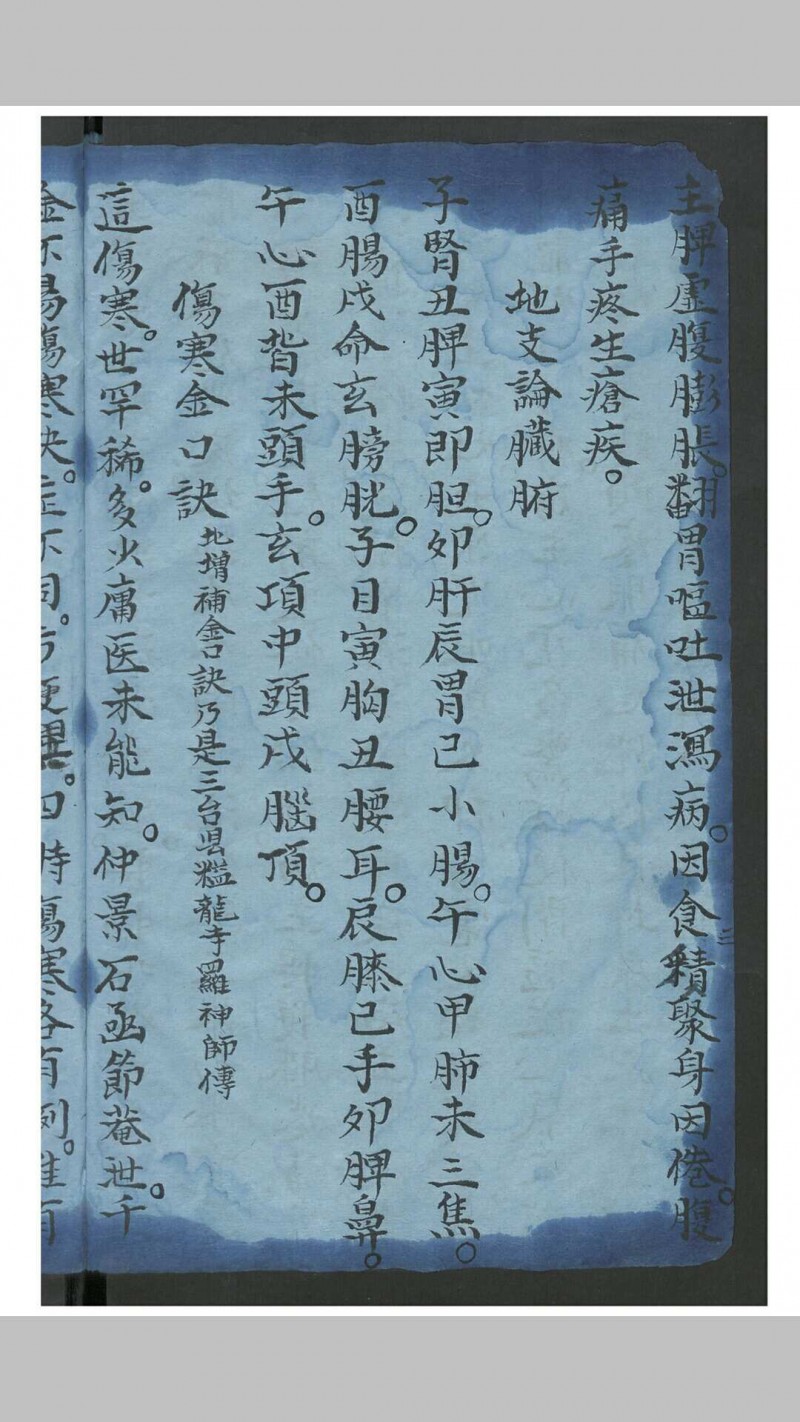 主脾虛腹膨脹。翻胃嘔吐泄瀉病。因食積聚身因倦。腹
痛手疼生瘡疾。
地支論臟腑
子腎丑脾寅即胆。夘肝辰胃巳小腸。午心甲肺未三焦。
酉腸戌命玄膀胱。子目寅胸丑腰耳。辰膝巳手夘脾鼻。
午心酉背未頭手。玄項中頭戌腦頂。
傷寒金口訣
此增補金口訣乃是三台縣龍寺羅神師傳
這傷寒。世罕稀。多少庸医未能知。仲景石函節菴泄。千
金不易傷寒訣。症不同。方便異。四時傷寒各有例。惟有